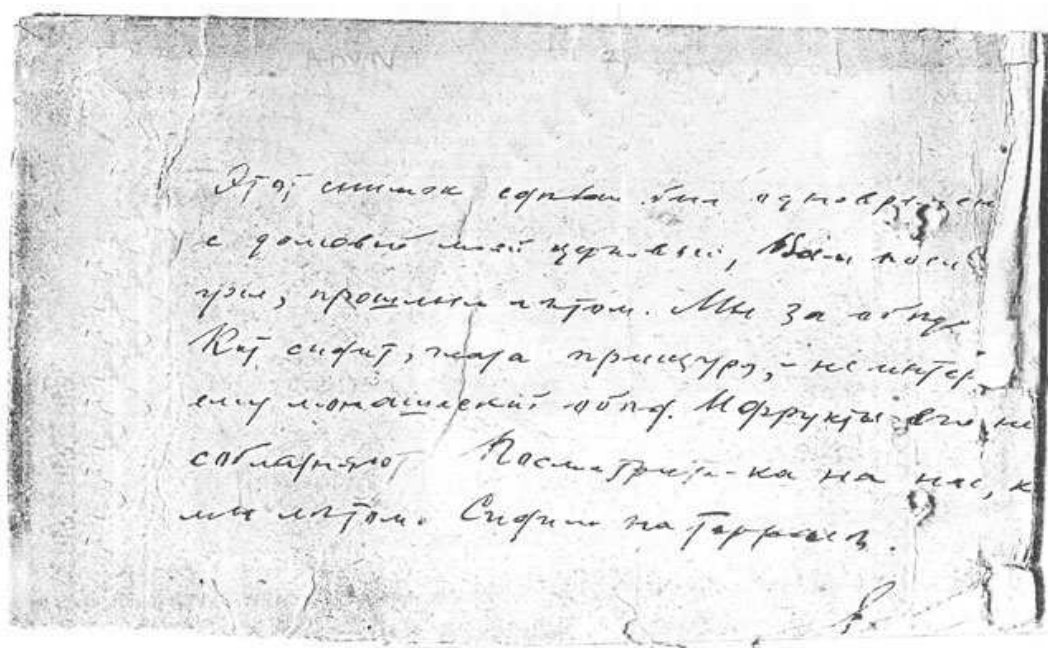 Этот снимок сдѣлан был одноврѣмен
с домовый моей церковью, Вам посм
прошлым лѣтом. Мы за обѣд
Кот сидит, глаза прищуря, - не интер
ему монашеский обѣд. И фрукты его не
соблазняют Посмотрите-ка на нас, к
мы лѣтом. Сидим на террасѣ.